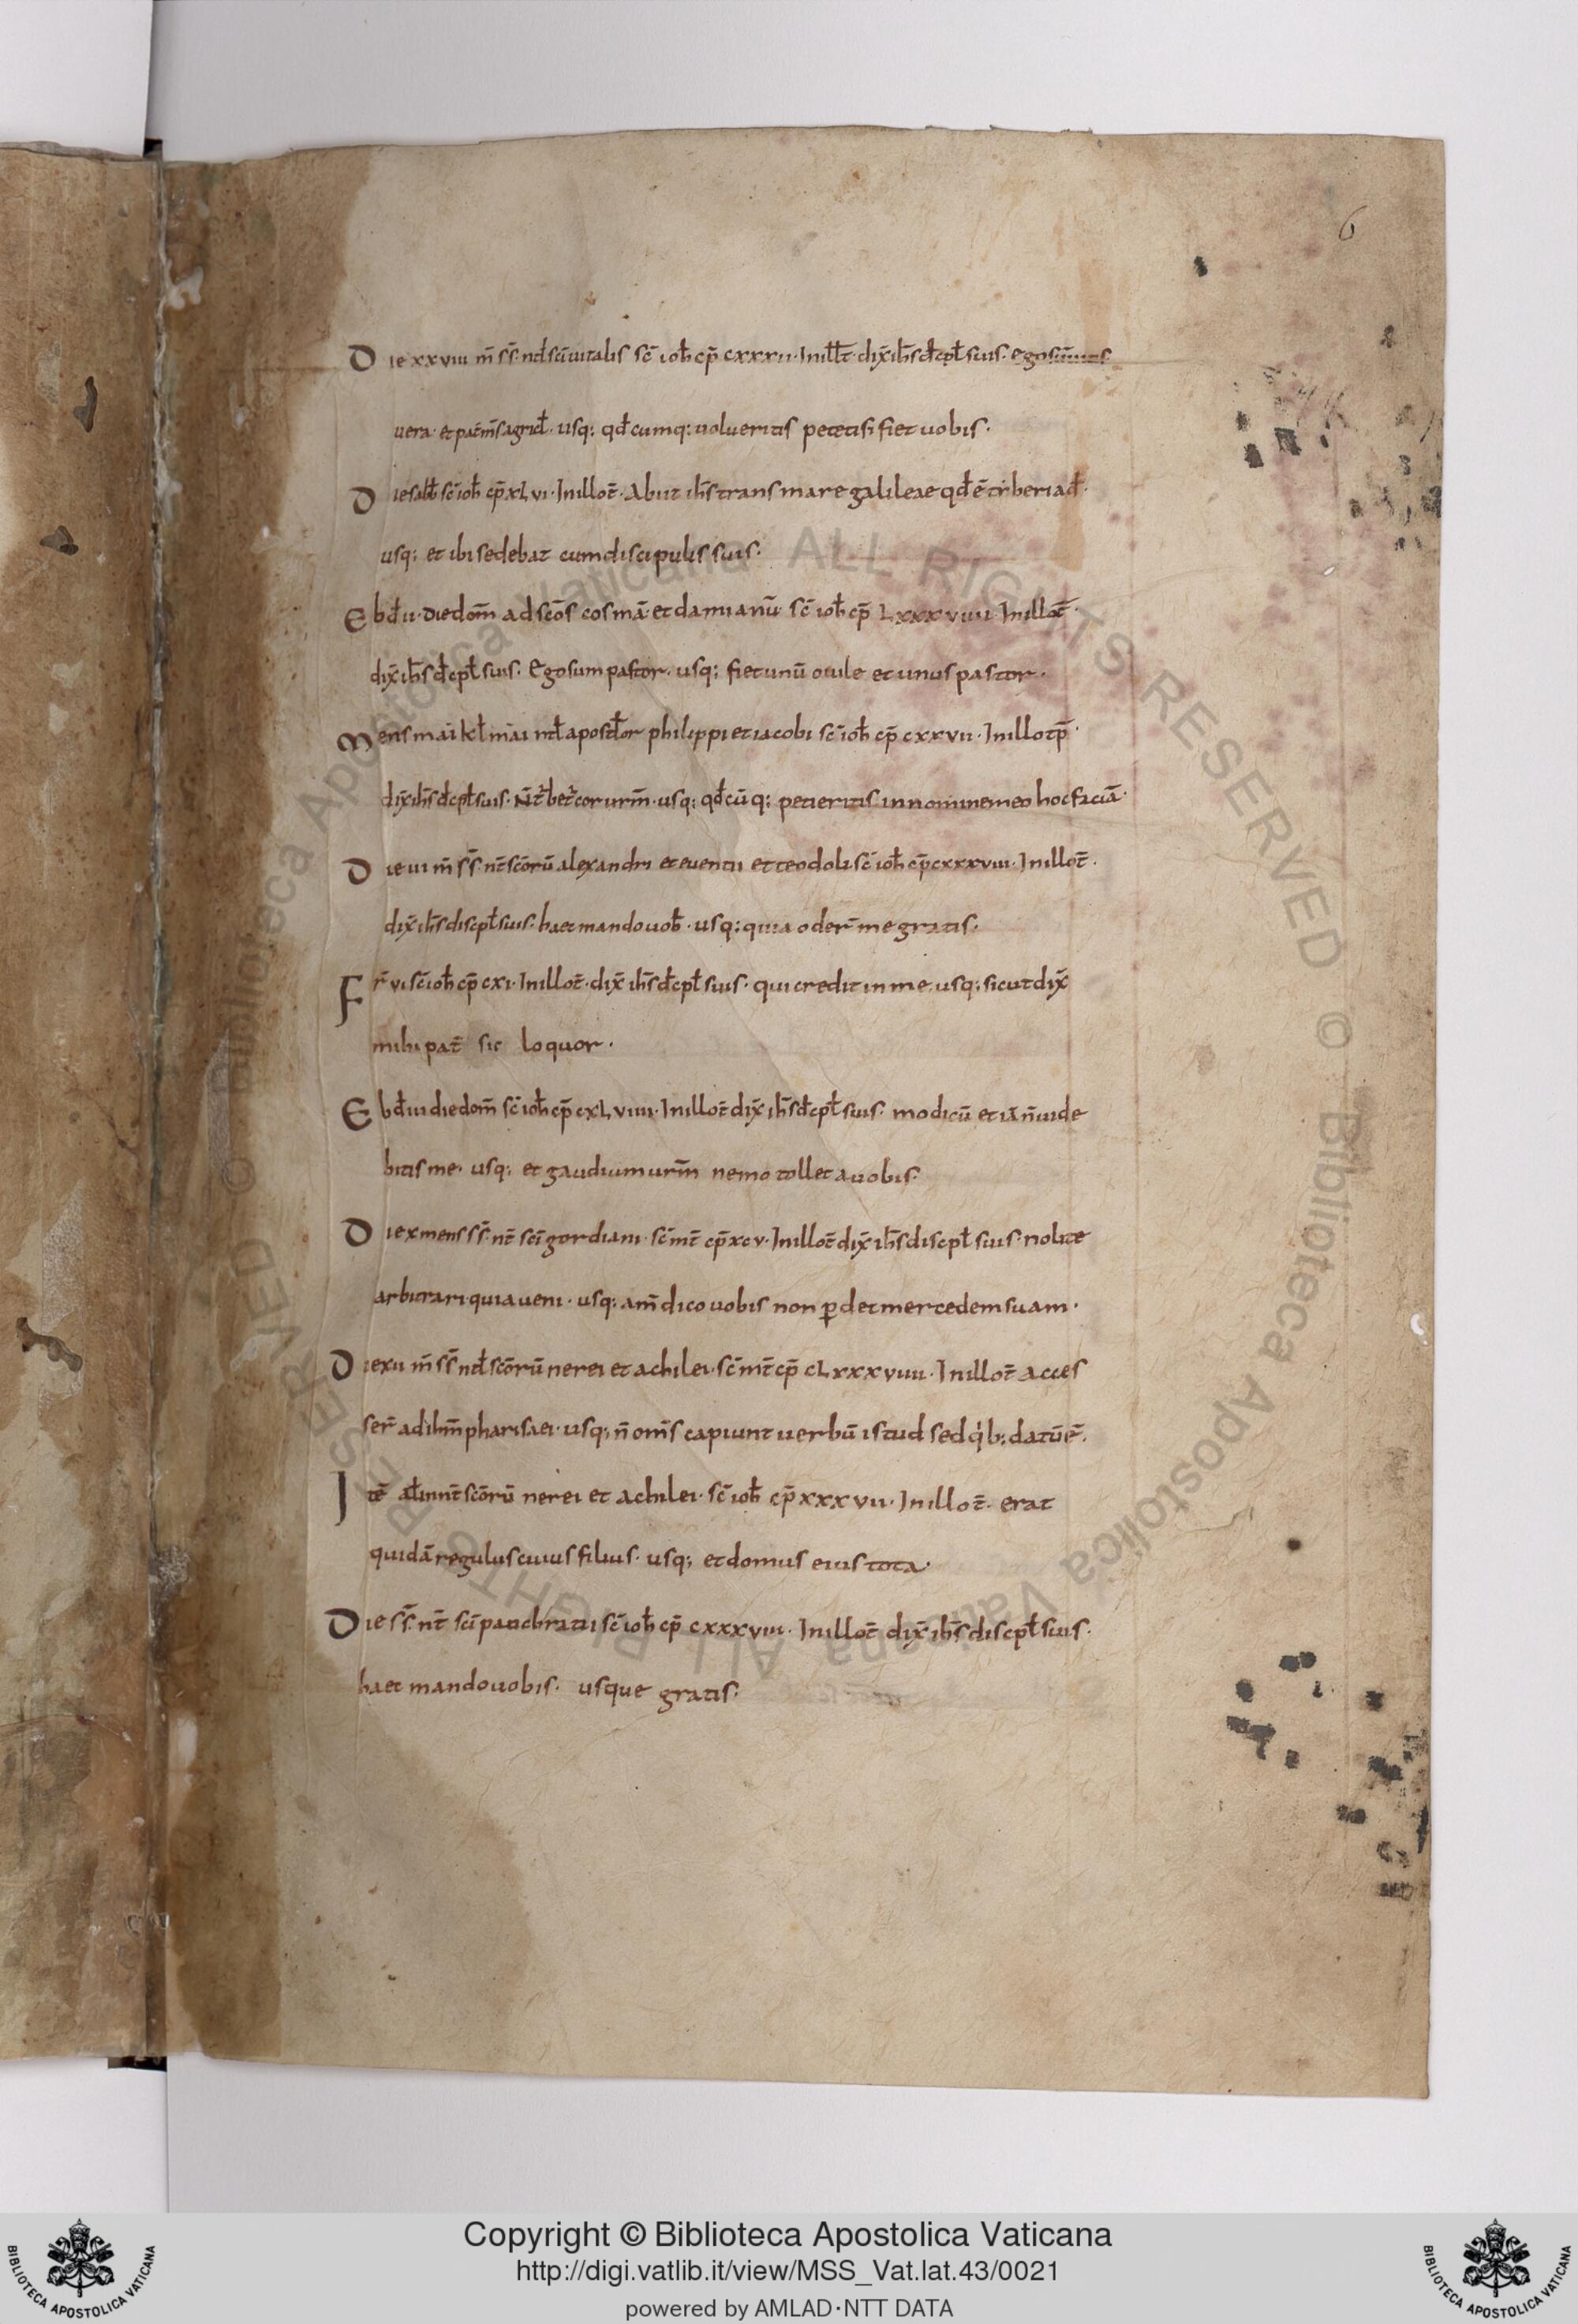 6
Die xxviii m̄ s̄s̄ · nat̄ sc̄i uitalis sc̄d ioh̄ cp̄ cxxxvi · In ill t̄ · dix̄ ih̄s dcpl̄ suis · ego sū uitis
uera · et pat̄ m̄s agricl̄ · usq; qd̄cumq; uolueritis petetis · fiet uobis ·
Die sab̄b sc̄d ioh̄ cp̄ xlvi · In illo t̄ · Abiit ih̄s trans mare galileae qd̄ ē tiberiad̄ ·
usq; et ibi sedebat cum discipulis suis ·
Ebd̄ ii · die dom̄ ad sc̄os cosmā et damianū sc̄d ioh̄ cp̄ lxxxviiii · In illo t̄ ·
dix̄ ih̄s dcpl̄ suis · Ego sum pastor · usq; fiet unū ouile et unus pastor ·
Mens mai kl̄ mai nat̄ apostol̄or philippi et iacobi sc̄d ioh̄ cp̄ cxxvii · In illo tp̄ ·
dix̄ ih̄s dcpl̄ suis · Ñ t̄ bet̄ cor ur̄m · usq; qd̄cūq; petieritis in nomine meo hoc faciā ·
Die iii m̄ s̄s̄ · nt̄ sc̄orū alexandri et euentii et teodoli sc̄d ioh̄ cp̄ cxxxviii · In illo t̄ ·
dix̄ ih̄s discpl̄ suis · haec mando uob̄ · usq; quia oder̄ me gratis ·
Fr̄ vi sc̄d ioh̄ cp̄ cxi · In illo t̄ · dix̄ ih̄s dcpl̄ suis · qui credit in me · usq; sicut dix̄
mihi pat̄ sic loquor ·
Ebd̄ iii die dom̄ sc̄d ioh̄ cp̄ cxlviiii · In illo t̄ dix̄ ih̄s dcpl̄ suis · modicū et iā n̄ uide
bitis me · usq; et gaudium ur̄m nemo tollet a uobis ·
Die x mens s̄s̄ · nt̄ sc̄i gordiani · sc̄d mt̄ cp̄ xcv · In illo t̄ dix̄ ih̄s discpl̄ suis · nolite
arbitrari quia ueni · usq; am̄ dico uobis non ꝑdet mercedem suam ·
Die xii m̄ s̄s̄ nat̄ sc̄orū nerei et achilei · sc̄d mt̄ cp̄ clxxxviiii · In illo t̄ acces
ser̄ ad ih̄m pharisaei · usq; n̄ om̄s capiunt uerbū istud sed qib; datū ē ·
Itē al̄ in nt̄ sc̄orū nerei et achilei · sc̄d ioh̄ cp̄ xxxvii · In illo t̄ · erat
quidā regulus cuius filius · usq; et domus eius tota ·
Die s̄s̄ · nt̄ sc̄i panchratii sc̄d ioh̄ cp̄ cxxxviii · In illo t̄ dix̄ ih̄s discpl̄ suis ·
haec mando uobis · usque gratis ·
Copyright © Biblioteca Apostolica Vaticana
http://digi.vatlib.it/view/MSS_Vat.lat.43/0021
powered by AMLAD·NTT DATA
BIBLIOTECA APOSTOLICA VATICANA
BIBLIOTECA APOSTOLICA VATICANA
© Biblioteca Apostolica Vaticana ALL RIGHTS RESERVED © Biblioteca Apostolica Vaticana ALL RIGHTS RESERVED